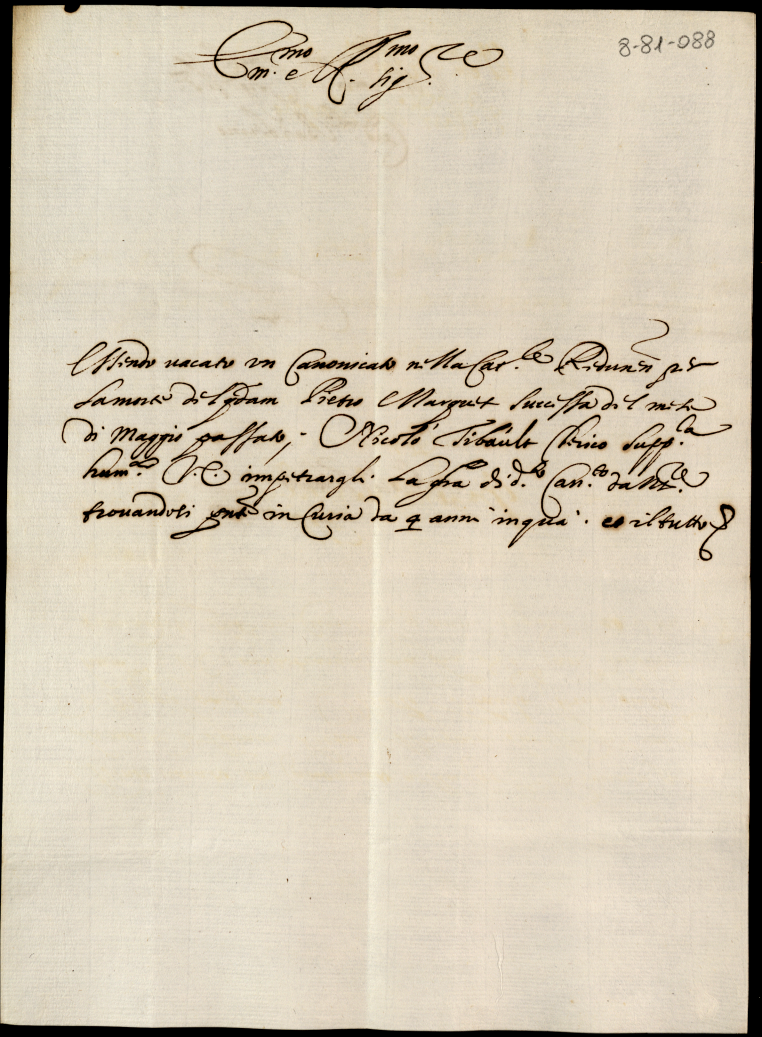 8-81-088
Em.mo e R.mo Sig.re
Essendo vacato un Canonicato nella Cat.le Redunen per
la morte del qdam Pietro Marquet successa del mese
di Maggio passato; Nicolò Tibault Clerico supp.ca
hum.te V.E. impetrargli la gra di d.to Can.to da N.
trovandosi pnte in Curia da 9 anni in qua. et il tutto